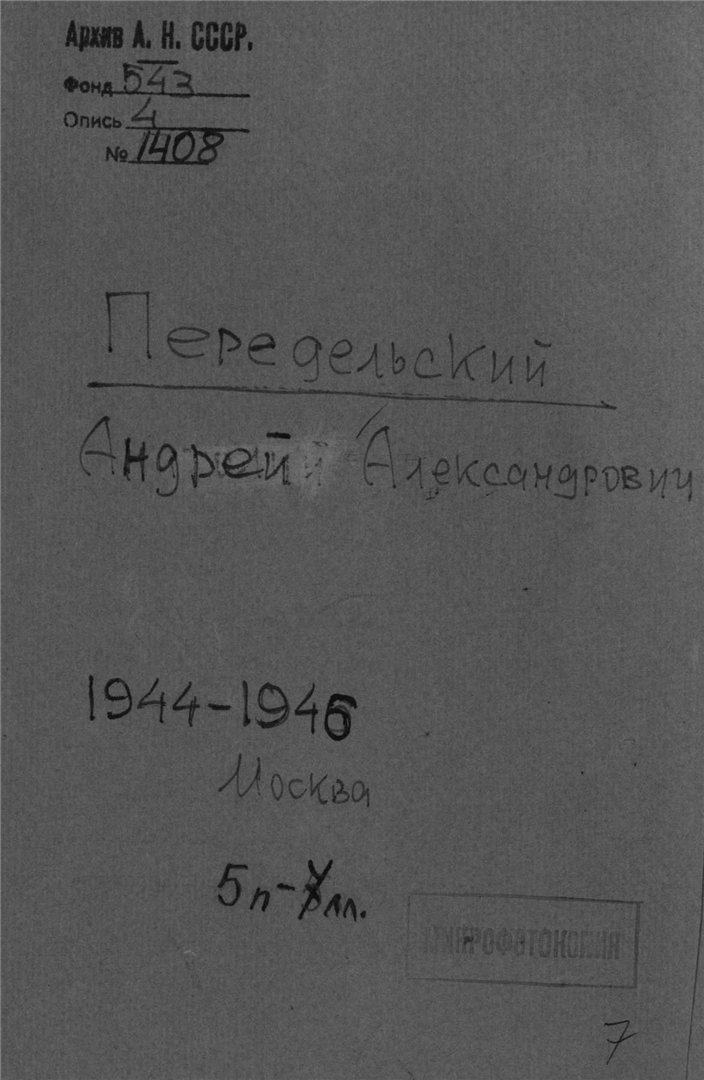 Архив А. Н. СССР.
Фонд 543
Опись 4
№ 1408
Передельский
Андрей Александрович
1944-1946
Москва
5п- лл.
МИКРОФОТОКОПИЯ
7